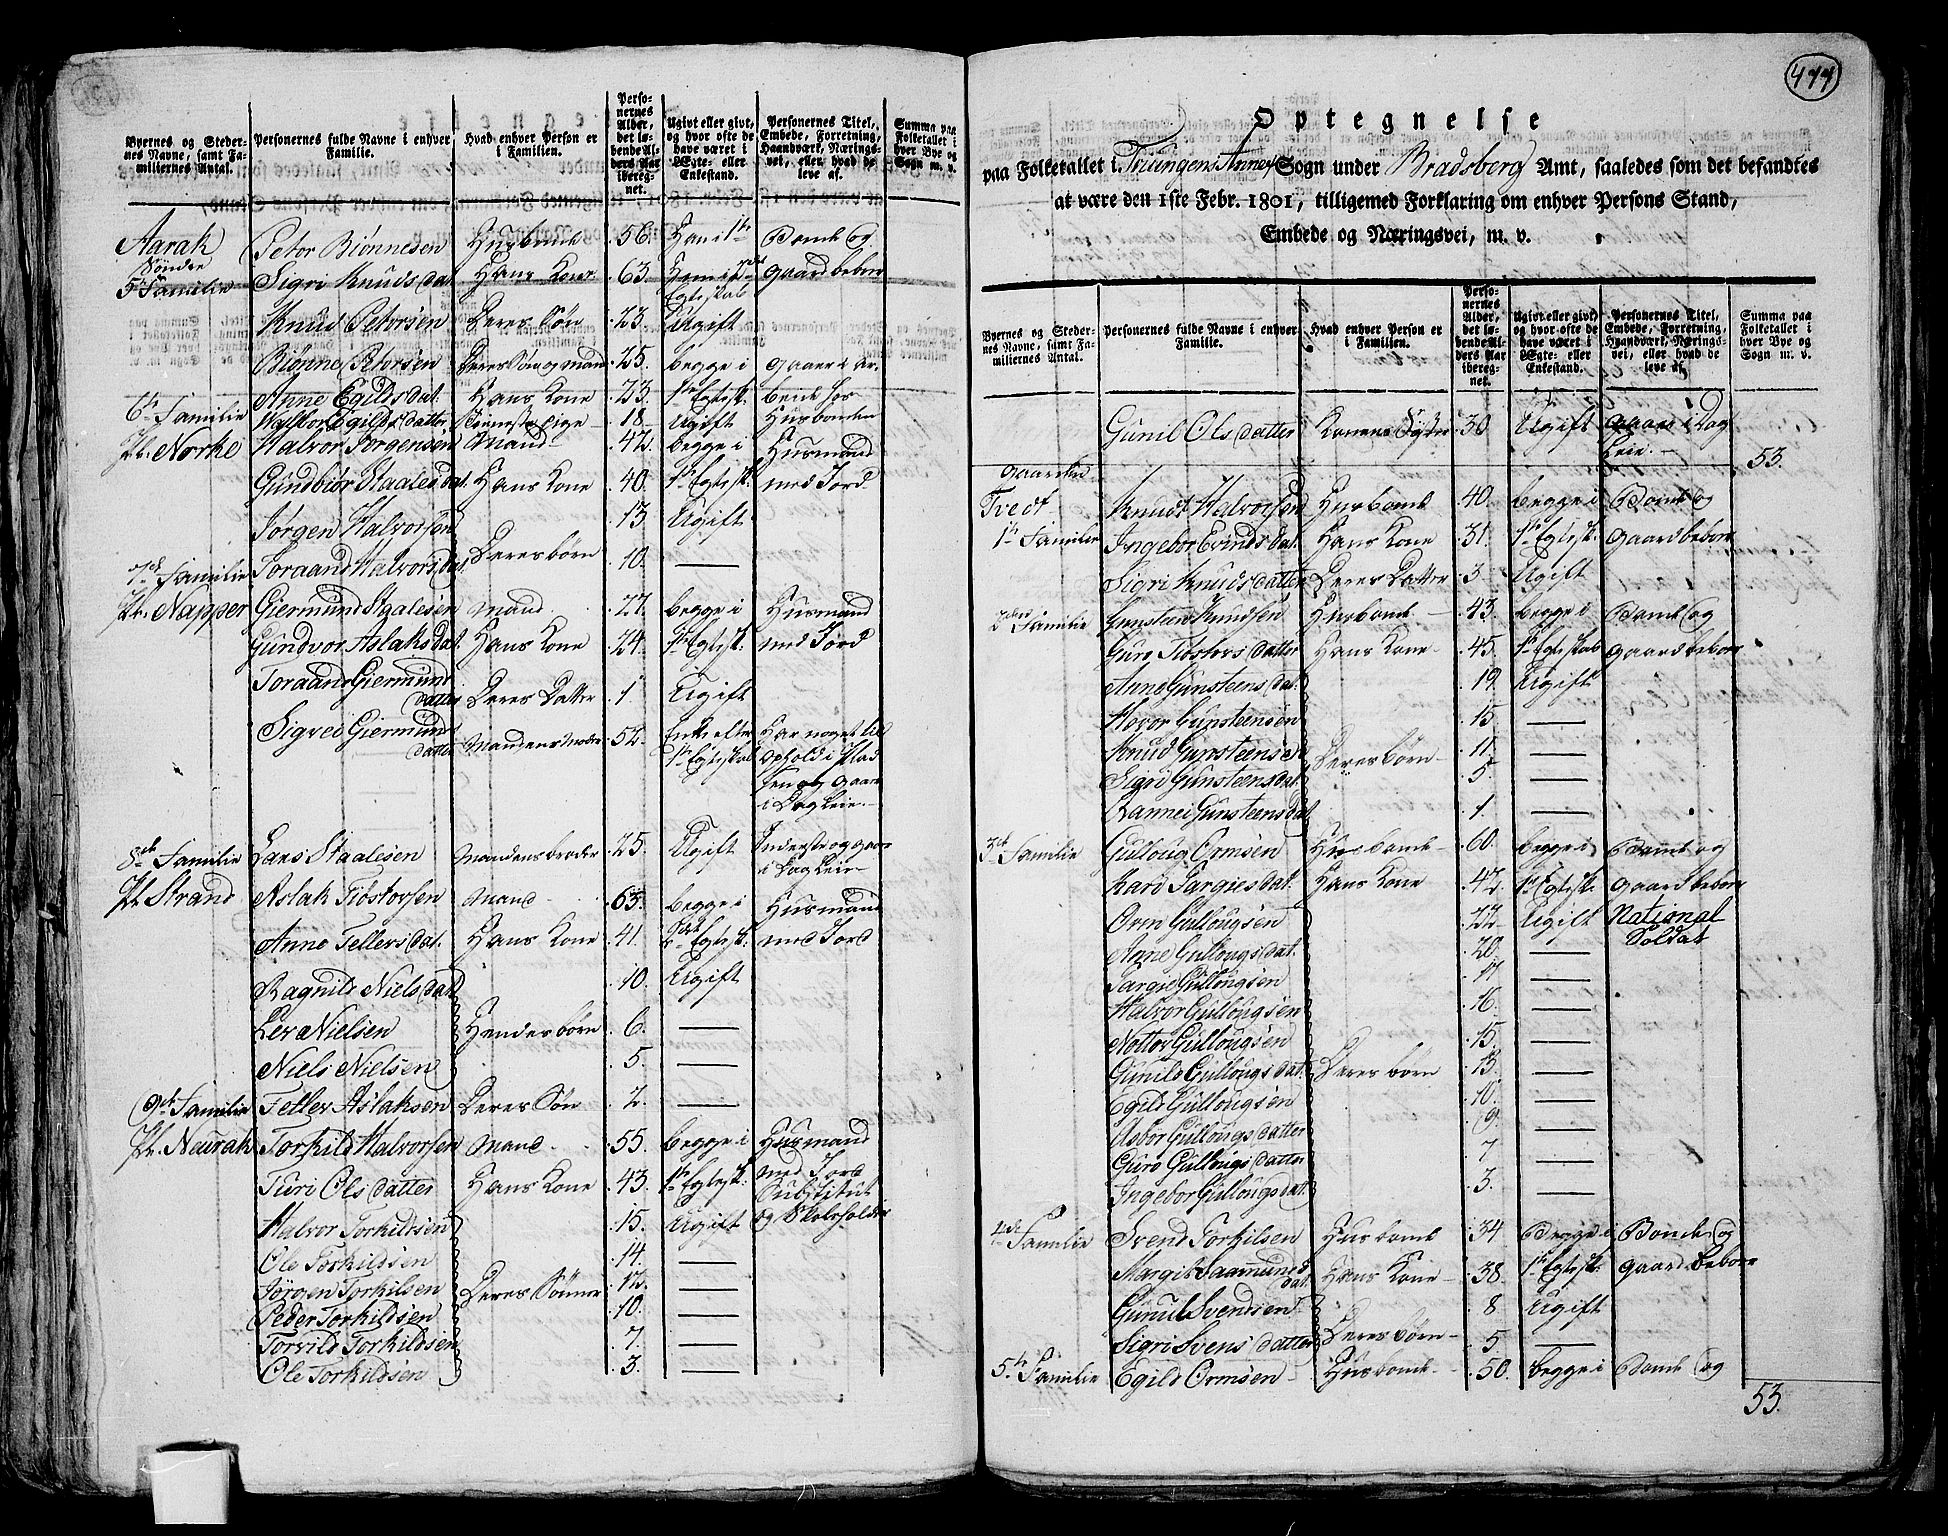 Byernes og Stedernes Navne, samt Familiernes Antal.
Personernes fulde Navne i enhver Familie.
Hvad enhver Person er i Familien.
Personernes Alder, det løbende Alders Aar iberegnet.
Ugivt eller givt, og hvor ofte de have været i Ægte- eller Enkestand.
Personernes Titel, Embede, Forretning, Haandværk, Næringsvei, eller hvad de leve af.
Summa paa Folketallet i hver Bye og Sogn m. v.
Aarak Peter Biønnesen Husbonde 56. Han i 1te Bonde og
Søndre
5te Familie Sigri Knudsdat. Hans Kone 63. gaardbeboer
Egteskab
Knud Petersen Deres Søn 23. Ugift
Biønne Petersen Deres Søn og mand 25. begge i
Anne Egildsdat. Hans Kone 23. 1te Egtesk.
6te Familie Walbor Egilds datter Tieneste Pige 18 Ugift Husbonden
Pl. Norke Halvor Jørgensen Mand 42. begge i Husmand
Gundbiør Staalesdat. Hans Kone 40. 1te Egtesk. med Jord
Jørgen Halvorsen 13. Ugift
Deres børn
7de Familie Toraand Halvorsdat. 10.
Pl. Napper Giermund Staalesen Mand 27. begge i Husmand
Gundvor Aslaksdat. Hans Kone 24. 1te Egtesk. med Jord
Toraand Giermund
datter Deres Datter 1. Ugift
Sigred Giermund
datter Mandens Moder 52. Enke efter Har noget til
1te Egteskab ophold i Plad
sen og gaaer
i Dag Leie
8de Familie Lars Staalesen Mandens broder 25. Ugift Inderste og gaaer
i Dag Leie
Pl. Strand Aslak Tostorsen Mand 63. begge i Husmand
Anne Tellefsdat. Hans Kone 41. 2det Egtesk. med Jord
Ragnild Nielsdat. 10. Ugift
Lev Nielsen Hendes børn 6.
Niels Nielsen 5.
9de Familie Tellef Aslaksen Deres Søn 2.
Pl. Neurak Torkild Halvorsen Mand 55. begge i Husmand
med Jord
Turi Ols datter Hans Kone 43. 1te Egtesk. Substitut
Halvor Torkildsen 15. Ugift og Skoleholder
Ole Torkildsen 14.
Jørgen Torkilsen Deres Sønner 12.
Peder Torkildsen 10.
Torvild Torkildsen 7.
Ole Torkildsen 3.
444
Optegnelse
paa Folketallet i Trungens Annex Sogn under Bradsberg Amt, saaledes som det befandtes
at være den 1ste Febr. 1801, tilligemed Forklaring om enhver Persons Stand,
Embede og Næringsvei, m. v.
Byernes og Stedernes Navne, samt Familiernes Antal.
Personernes fulde Navne i enhver Familie.
Hvad enhver Person er i Familien.
Personernes Alder, det løbende Alders Aar iberegnet.
Ugivt eller givt, og hvor ofte de have været i Ægte- eller Enkestand.
Personernes Titel, Embede, Forretning, Haandværk, Næringsvei, eller hvad de leve af.
Summa paa Folketallet i hver Bye og Sogn m. v.
Gunil Ols datter Konens Syster 30 Ugift gaaer i Dag
Leie. 53.
Gaarden
Tvedt Knud Halvorsen Husbonde 40. begge i Bonde og
1te Familie Ingebor Evindsdat. Hans Kone 31. 1te Egtesk. gaardbeboer
Sigri Knudsdatter Deres Datter 3 Ugift
2den Familie Gunsteen Knudsen Husbonde 43. begge i Bonde og
Guro Tostors datter Hans Kone 45. 1te Egteskab gaardbeboer
Anne Gunsteensdat. 19 Ugift
Hovor Gunsteensen 15.
Knud Gunsteensen 11.
Deres børn
Sigri Gunsteensdat. 5
Rannei Gunsteensdat. 1.
3de Familie Gulloug Ormsen Husbonde 60. begge i Bonde og
Kari Targiesdat. Hans Kone 42. 1te Egtesk. gaardbeboer
Orm Gullougsen 22 Ugift National
Soldat
Anne Gullougsdat. 20
Targie Gullougsen 17
Halvor Gullougsen 16.
Nottor Gullougsen 15.
Gunild Gullougsdat. Deres børn 13.
Egild Gullougsen 10.
Asbor Gullougsdatter 9
Guro Gullougsdatter 7
Ingebor Gullougsdat. 3.
4de Familie Svend Torkilsen Husbonde 34 Begge i Bonde og
Margit Saamunds
dat. Hans Kone 38. 1te Egtesk. gaardbeboer
Gunul Svendsen 8 Ugift
Deres børn
Sigri Svens datter 5
5te Familie Egild Ormsen Husbonde 50. begge i Bonde og
53.